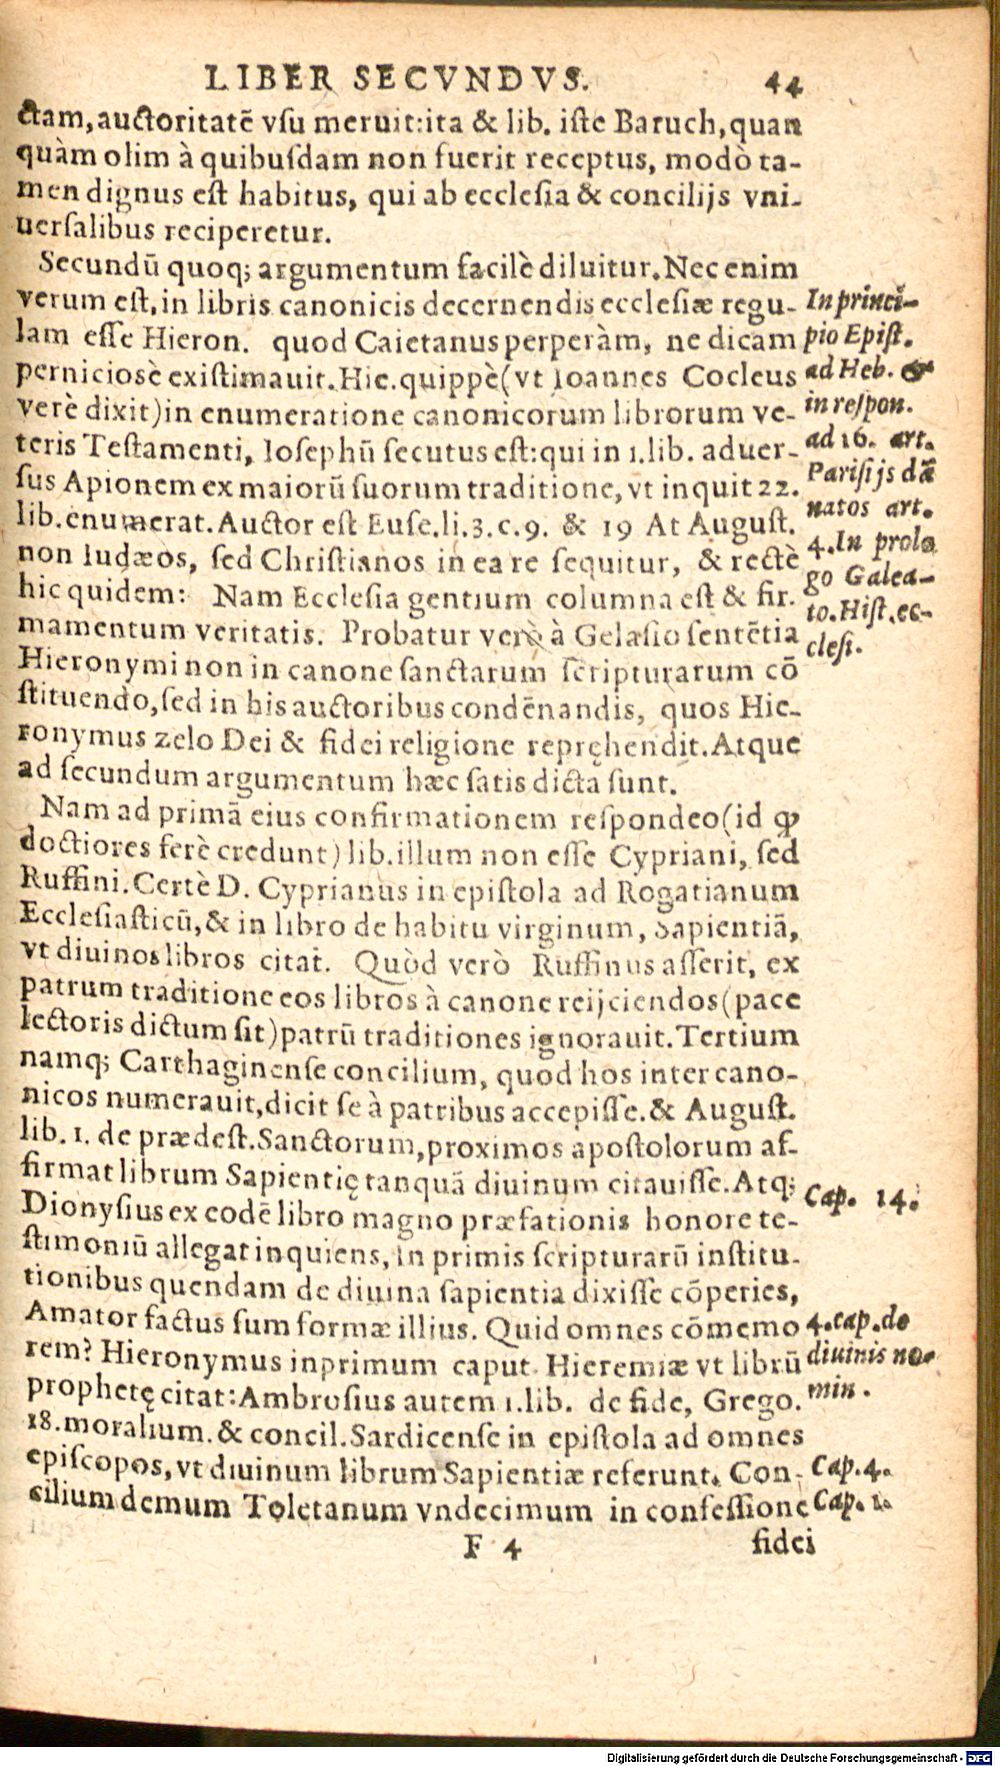 LIBER SECVNDVS. 44
ctam, auctoritatē vsu meruit: ita & lib. iste Baruch, quan
quàm olim à quibusdam non fuerit receptus, modò ta-
men dignus est habitus, qui ab ecclesia & concilijs vni-
uersalibus reciperetur.
Secundū quoq; argumentum facilè diluitur. Nec enim
verum est, in libris canonicis decernendis ecclesiæ regu-
lam esse Hieron. quod Caietanus perperàm, ne dicam
perniciosè existimauit. Hic. quippè (vt Ioannes Cocleus
verè dixit) in enumeratione canonicorum librorum ve-
teris Testamenti, Iosephū secutus est: qui in 1. lib. aduer-
sus Apionem ex maiorū suorum traditione, vt inquit 22.
lib. enumerat. Auctor est Euse. li. 3. c. 9. & 19 At August.
non Iudæos, sed Christianos in ea re sequitur, & rectè
hic quidem: Nam Ecclesia gentium columna est & fir-
mamentum veritatis. Probatur verò à Gelasio sentētia
Hieronymi non in canone sanctarum scripturarum cō
stituendo, sed in his auctoribus condēnandis, quos Hie-
ronymus zelo Dei & fidei religione repręhendit. Atque
ad secundum argumentum hæc satis dicta sunt.
Nam ad primā eius confirmationem respondeo (id ꝙ
doctiores ferè credunt) lib. illum non esse Cypriani, sed
Ruffini. Certè D. Cyprianus in epistola ad Rogatianum
Ecclesiasticū, & in libro de habitu virginum, Sapientiā,
vt diuinos libros citat. Quòd verò Ruffinus asserit, ex
patrum traditione eos libros à canone reijciendos (pace
lectoris dictum sit) patrū traditiones ignorauit. Tertium
namq; Carthaginense concilium, quod hos inter cano-
nicos numerauit, dicit se à patribus accepisse. & August.
lib. 1. de prædest. Sanctorum, proximos apostolorum af-
firmat librum Sapientię tanquā diuinum citauisse. Atq;
Dionysius ex codē libro magno præfationis honore te-
stimoniū allegat inquiens, In primis scripturarū institu-
tionibus quendam de diuina sapientia dixisse cōperies,
Amator factus sum formæ illius. Quid omnes cōmemo
rem? Hieronymus in primum caput Hieremiæ vt librū
prophetę citat: Ambrosius autem 1. lib. de fide, Grego.
18. moralium. & concil. Sardicense in epistola ad omnes
episcopos, vt diuinum librum Sapientiæ referunt. Con-
cilium demum Toletanum vndecimum in confessione
F 4 fidei
In princi-
pio Epist.
ad Heb. &
in respon.
ad 16. art.
Parisijs dā
natos art.
4. In prolo
go Galea-
to. Hist. ec-
clesi.
Cap. 14.
4. cap. de
diuinis no-
min.
Cap. 4.
Cap. 1.
Digitalisierung gefördert durch die Deutsche Forschungsgemeinschaft - DFG